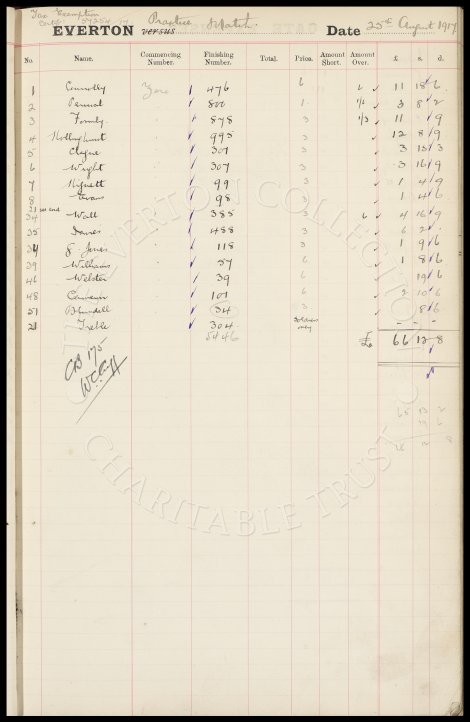 Tax Exemption
Practice Match
EVERTON versus Date 25th August 1917
No. Name. Commencing Number. Finishing Number. Total. Price. Amount Short. Amount Over. £ s. d.
1 Connolly Zero 476 6 6 11 18 6
2 800 1 3 8 2
3 Formby 878 3 1/3 11 9
4 995 3 12 8 9
5 Clague 301 3 3 15 3
6 Wright 307 3 3 16 9
7 Hignett 99 3 1 4 9
8 Evans 98 3 1 4 6
21 34 Wall 385 3 6 4 16 9
35 Davies 488 3 6 2 .
J. Jones 118 3 1 9 6
39 Williams 57 6 1 8 6
46 Webster 39 6 19 6
48 101 6 2 10 6
51 Blundell 34 3 8 6
21 Treble 304 Soldiers only - - -
5446 £ 66 13 8
CB 175
65 13 2
19 6
THE EVERTON COLLECTION
CHARITABLE TRUST